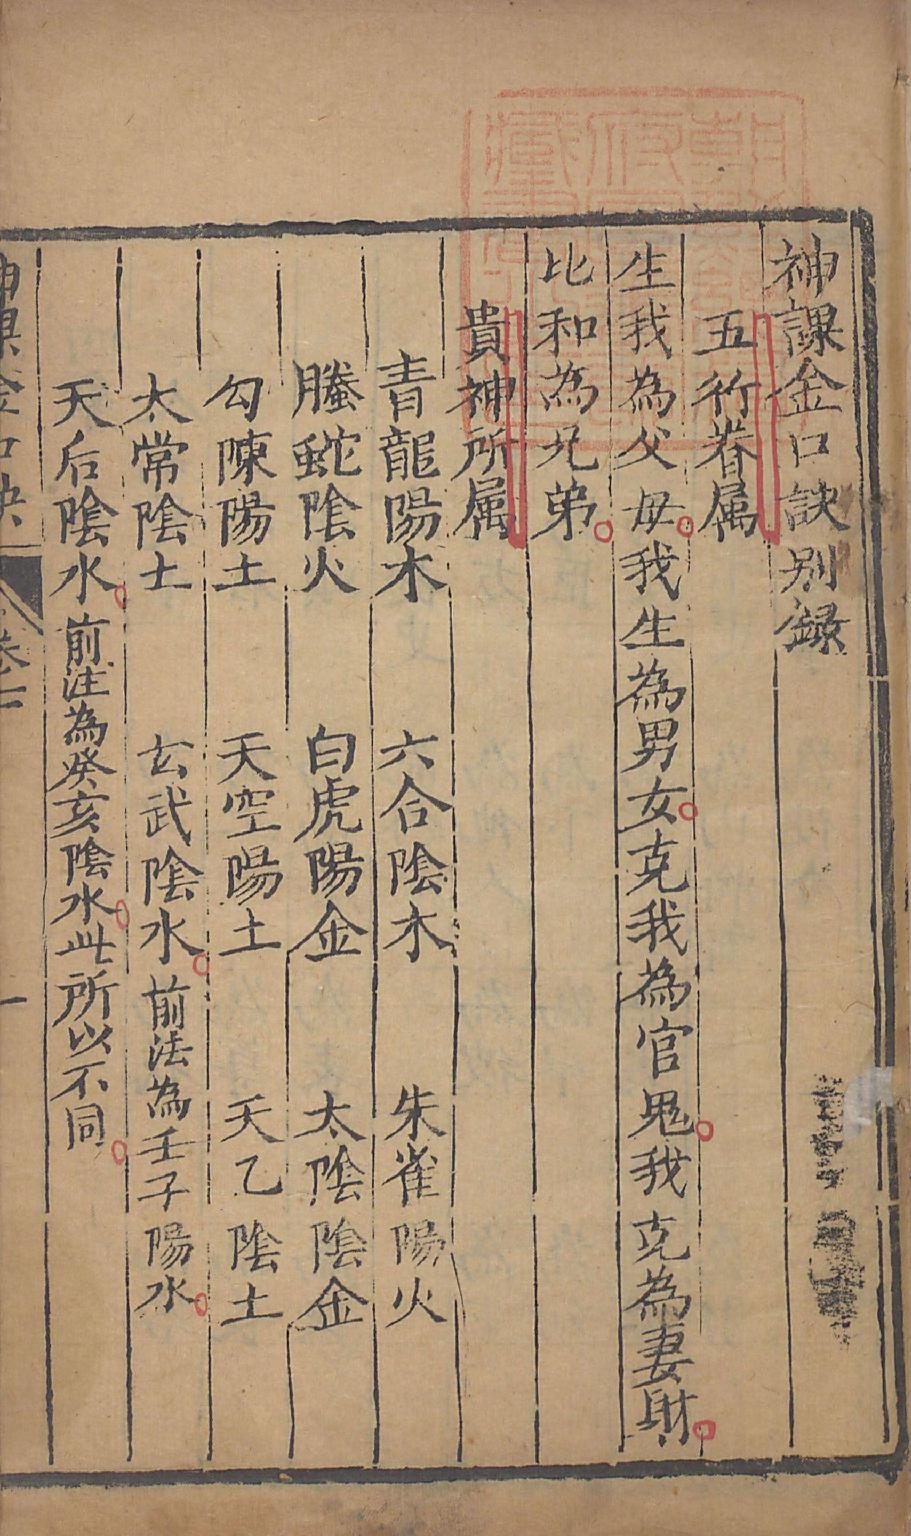 神課金口訣别録
五行眷属
生我為父母我生為男女克我為官鬼我克為妻財
比和為兄弟
貴神所属
青龍陽木　六合陰木　朱雀陽火
螣蛇陰火　白虎陽金　太陰陰金
勾陳陽土　天空陽土　天乙陰土
太常陰土　玄武陰水前法為壬子陽水
天后陰水前注為癸亥陰水此所以不同
神課金口訣